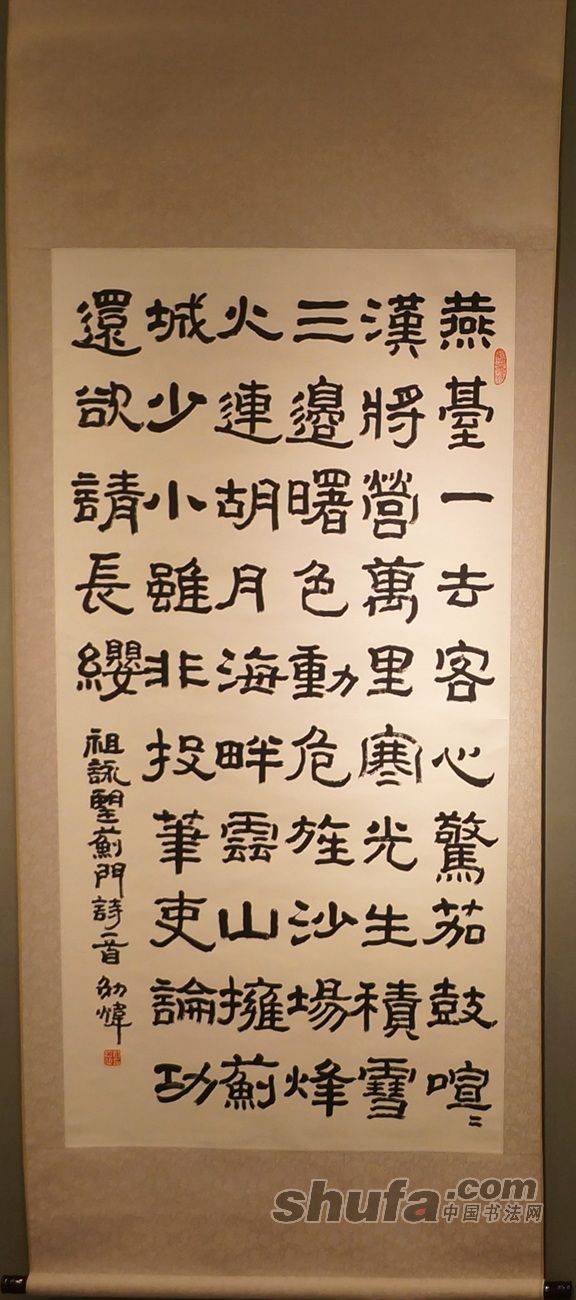 燕臺一去客心驚茄鼓喧〻
漢將營萬里寒光生積雪
三邊曙色動危旌沙場烽
火連胡月海畔雲山擁薊
城少小雖非投筆吏論功
還欲請長纓
祖詠望薊門詩一首 幼煒
shufa.com
中国书法网